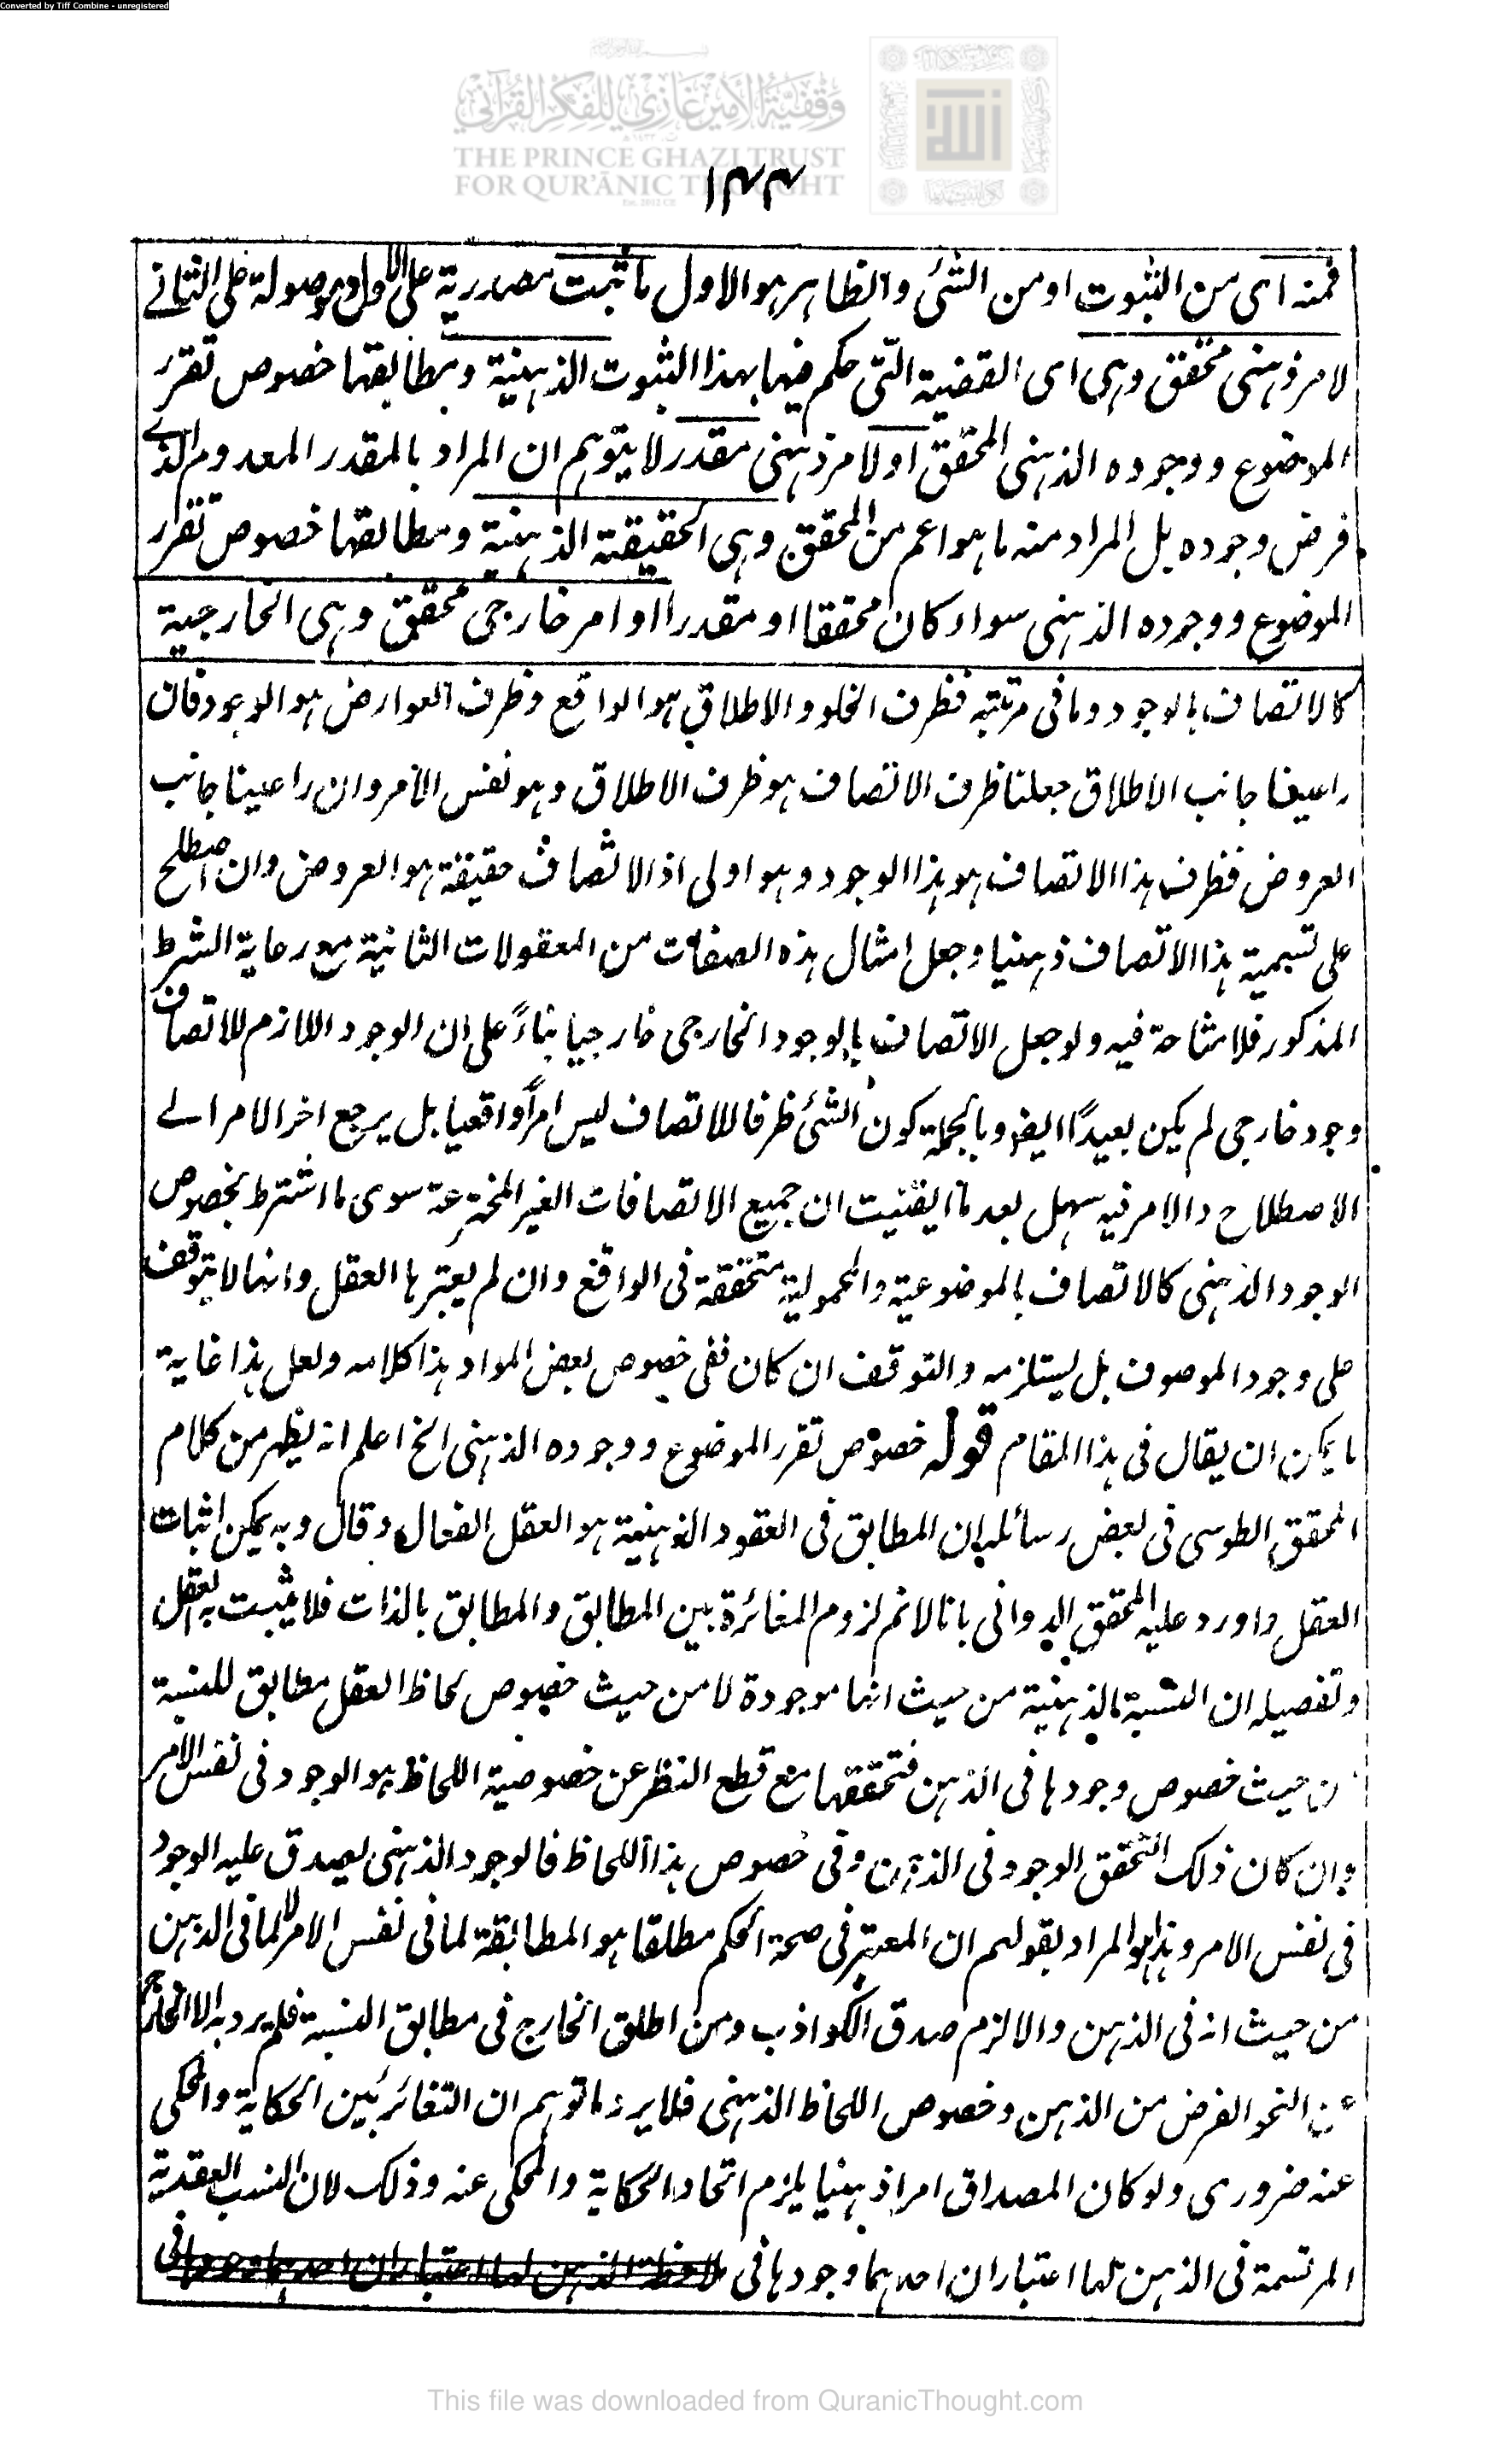 Converted by Tiff Combine - unregistered
وقفية الأمير غازي للفكر القرآني
THE PRINCE GHAZI TRUST
FOR QUR'ĀNIC THOUGHT
١٤٤
فمنه اى من الثبوت او من الشئ والظاهر هو الاول ما ثبت مصدرية على الاول وموصولة على الثانے
لامر ذهنى محقق وهى اى القضية التى حكم فيها بهذا الثبوت الذهنية ومطابقها خصوص تقرر
الموضوع ووجوده الذهنى المحقق او لامر ذهنى مقدر لا يتوهم ان المراد بالمقدر المعدوم الذے
فرض وجوده بل المراد منه ما هو اعم من المحقق وهى الحقيقية الذهنية ومطابقها خصوص تقرر
الموضوع ووجوده الذهنى سواء كان محققا او مقدرا او امر خارجى محقق وهى الخارجية
كالاتصاف بالوجود وما فى مرتبته فظرف الخلو والاطلاق هو الواقع وظرف العوارض هو الوجود فان
راعينا جانب الاطلاق جعلنا ظرف الاتصاف هو ظرف الاطلاق وهو نفس الامر وان راعينا جانب
العروض فظرف هذا الاتصاف هو هذا الوجود وهو اولى اذ الاتصاف حقيقة هو العروض وان اصطلح
على تسمية هذا الاتصاف ذهنيا وجعل امثال هذه الصفات من المعقولات الثانية مع رعاية الشرط
المذكور فلا مشاحة فيه ولو جعل الاتصاف بالوجود الخارجى خارجيا بناءً على ان الوجود اللازم للاتصاف
وجود خارجى لم يكن بعيدًا ايضو وبالجملة كون الشئ ظرفا للاتصاف ليس امرًا واقعيا بل يرجع اخر الامر الے
الاصطلاح والامر فيه سهل بعد ما ايقنت ان جميع الاتصافات الغير المخترعة سوى ما اشترط بخصوص
الوجود الذهنى كالاتصاف بالموضوعية والمحمولية متحققة فى الواقع وان لم يعتبرها العقل وانها لا يتوقف
على وجود الموصوف بل يستلزمه والتوقف ان كان ففى خصوص بعض المواد هذا كلامه ولعل هذا غاية
ما يمكن ان يقال فى هذا المقام قوله خصوص تقرر الموضوع ووجوده الذهنى الخ اعلم انه يظهر من كلام
المحقق الطوسى فى بعض رسائله ان المطابق فى العقود الذهنية هو العقل الفعال وقال وبه يمكن اثبات
العقل واورد عليه المحقق الدوانى بانا لانم لزوم المغائرة بين المطابق والمطابق بالذات فلا يثبت به العقل
وتفصيله ان النسبة الذهنية من حيث انها موجودة لا من حيث خصوص لحاظ العقل مطابق للنسبة
من حيث خصوص وجودها فى الذهن فتحققها مع قطع النظر عن خصوصية اللحاظ هو الوجود فى نفس الامر
وان كان ذلك التحقق الوجود فى الذهن وفى خصوص هذا اللحاظ فالوجود الذهنى يصدق عليه الوجود
فى نفس الامر وهذا هو المراد بقولهم ان المعتبر فى صحة الحكم مطلقا هو المطابقة لما فى نفس الامر لا لما فى الذهن
من حيث انه فى الذهن والا لزم صدق الكواذب ومن اطلق الخارج فى مطابق النسبة فلم يرد به الا الخارج
عن النحو الفرض من الذهن وخصوص اللحاظ الذهنى فلا يرد ما توهم ان التغائر بين الحكاية والمحكى
عنه ضرورى ولو كان المصداق امرا ذهنيا يلزم اتحاد الحكاية والمحكى عنه وذلك لان النسب العقدية
المرتسمة فى الذهن لها اعتباران احدهما وجودها فى
This file was downloaded from QuranicThought.com